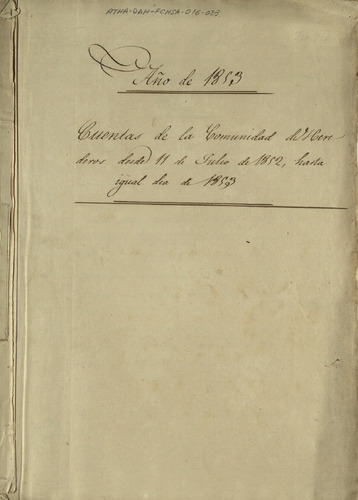 ATHA-DAH-FCHSA-016-023
Año de 1853
Cuentas de la Comunidad de Here
deros desde 11 de Julio de 1852, hasta
igual dia de 1853